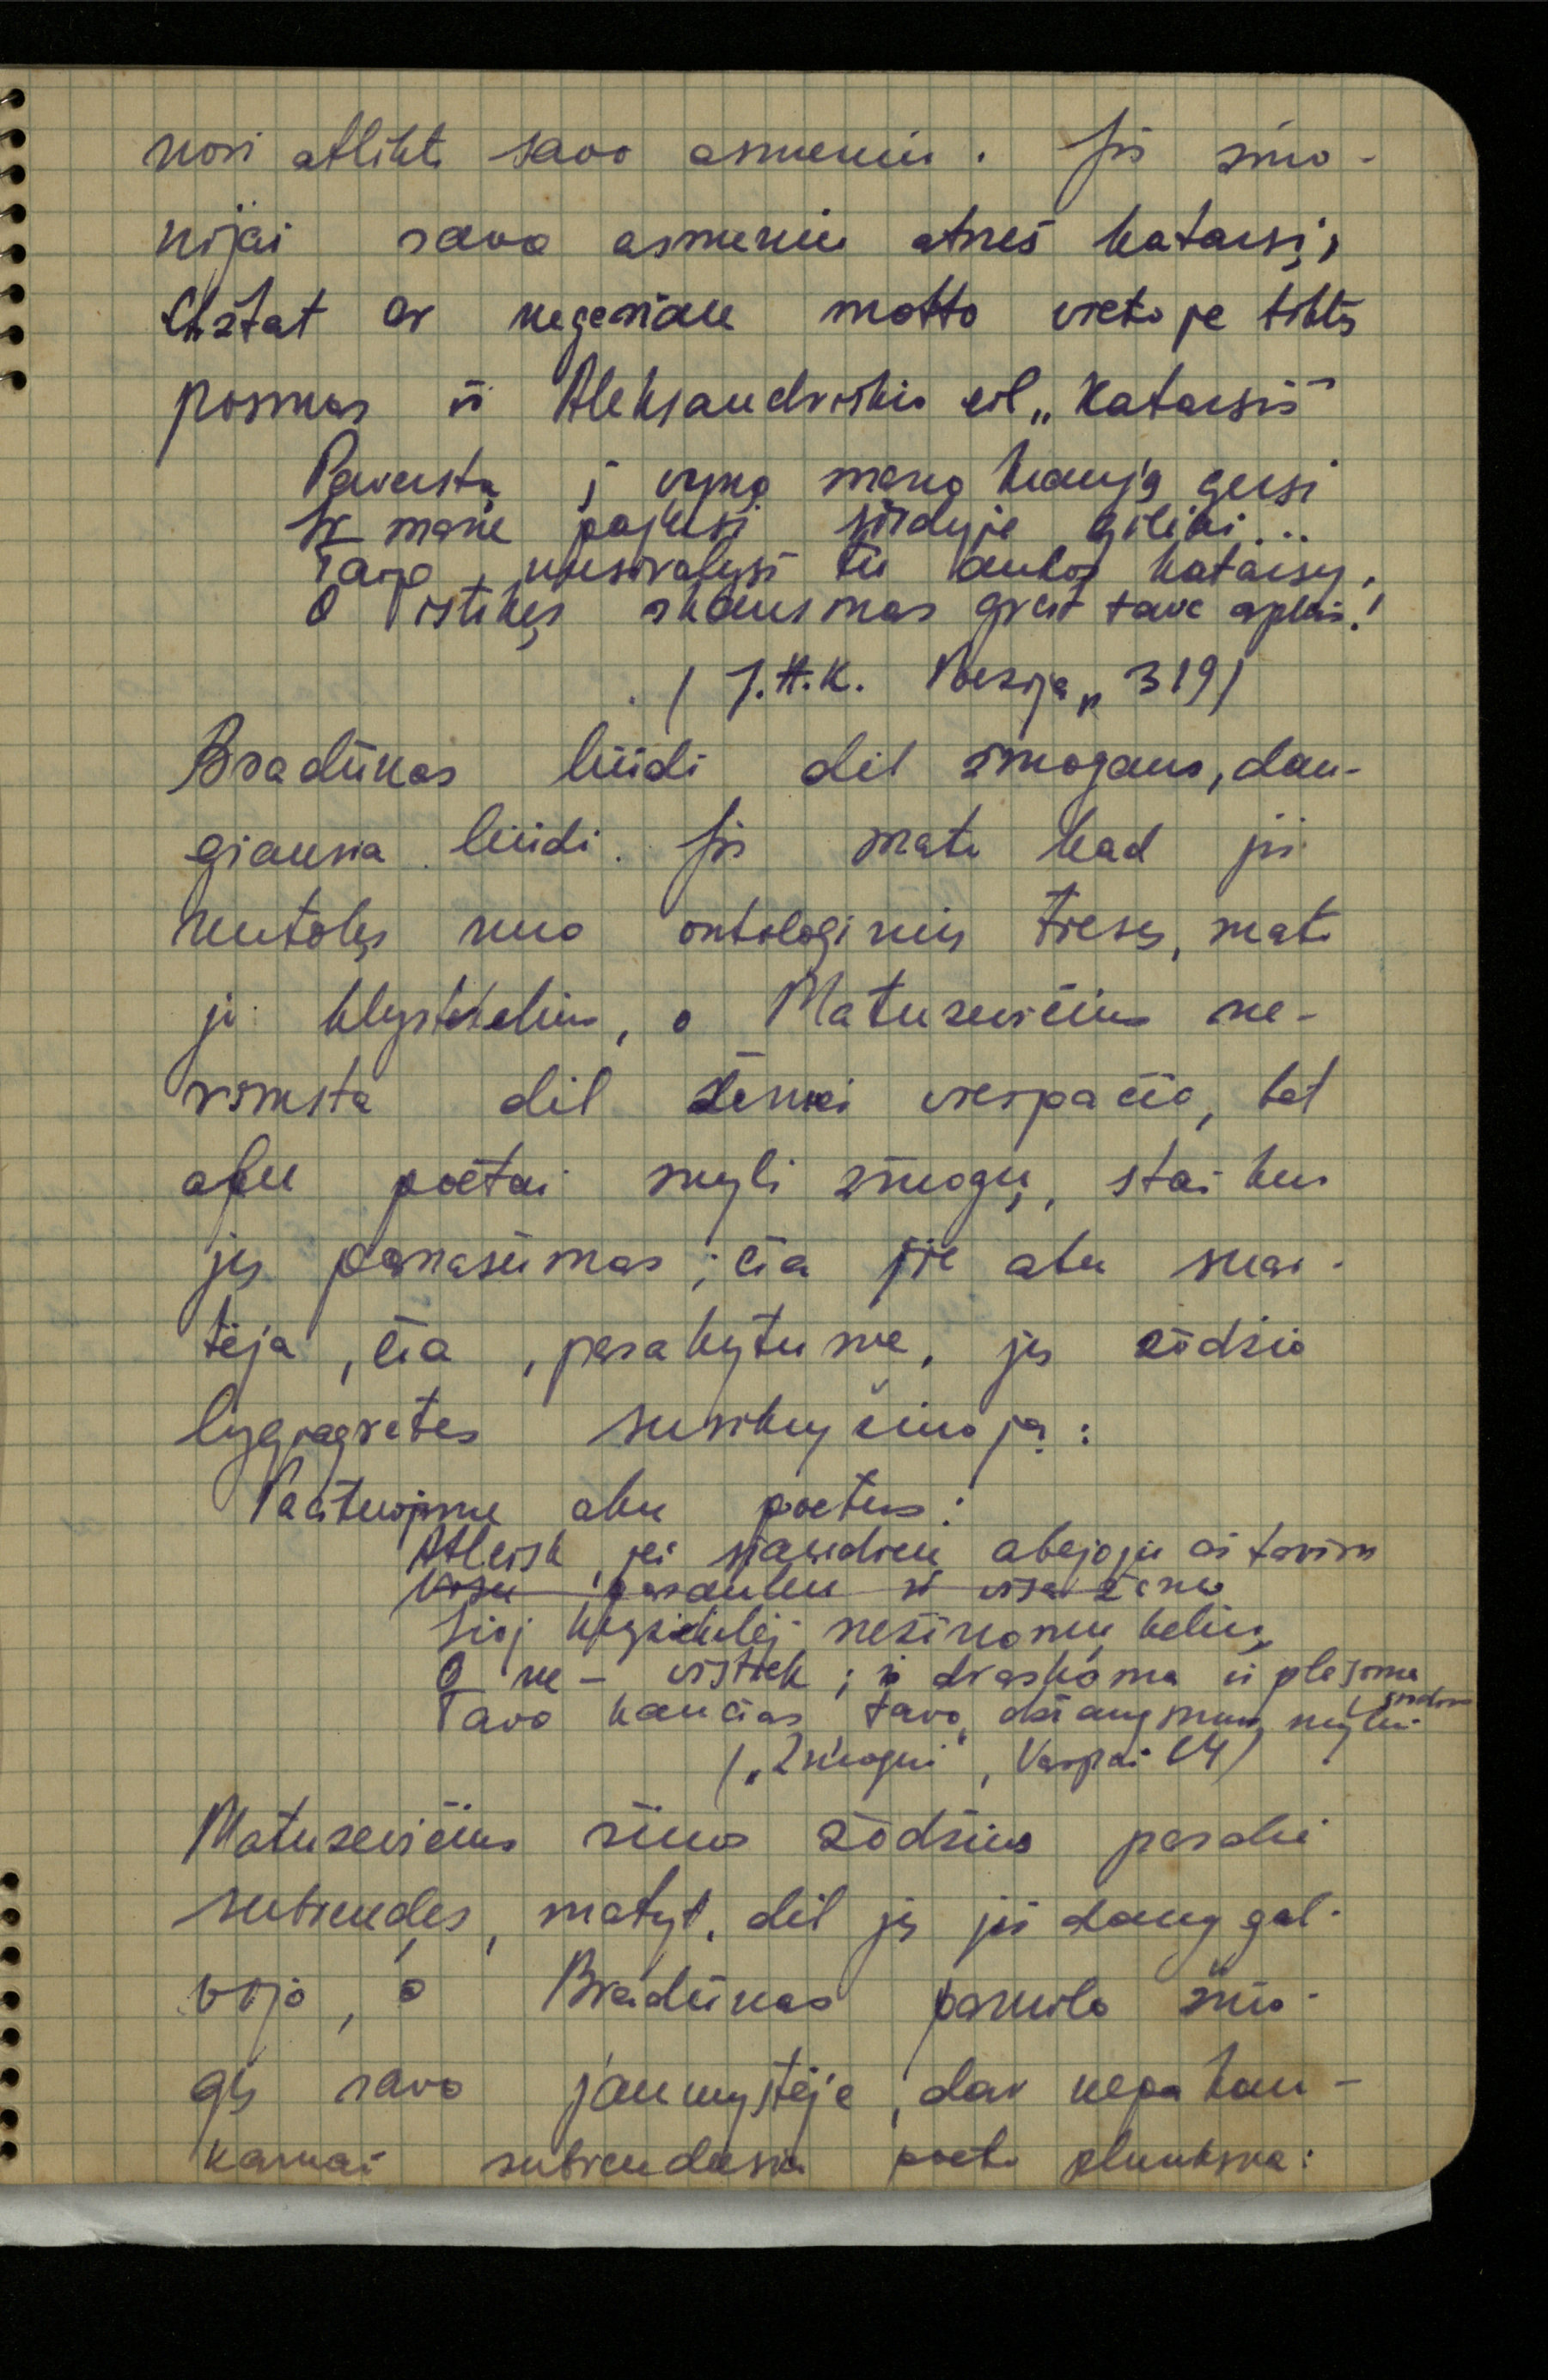 nori atlikti savo asmeniu. Jis žmo-
nijai savo asmeniu atneš katarsį,
ar negeriau motto vietoje tiktų
posmas iš Aleksandriškio eil „Katarsis"
Paverstą į vyną mano kraują gersi
Ir mane pajusi širdyje giliai...
Tarp tu aukos katarsy,
O ištikęs skausmas greit tave apleis!
( J.A.K. Poezija„ 319)
Bradūnas liūdi dėl žmogaus, dau-
giausia liūdi. Jis mato kad jis
nutolęs nuo ontologinių tiesų, mato
jo klystkelius, o Matuzevičius ne-
rimsta dėl žemės viešpačio, bet
abu poetai myli žmogų, štai kur
jų panašumas; čia jie abu
tėja, čia, pasakytume, jų žodžio
lygiagretės susikryžiuoja:
Pacituojame abu poetus:
Atleisk, jei šiandien abejoju aš tavim
Visu pasauliu ir visa žeme
Šioj kryžkelėj nežinomų kelių,
O ne – vistiek; ir draskoma ir plėšoma širdim
Tavo kančias tavo džiaugsmus myliu.
(„Žmogui", Varpai 44)
Matuzevičius šiuos žodžius parašė
subrendęs, matyt, dėl jų jis daug gal-
vojo, o Bradūnas pamilo žmo-
gų savo jaunystėje, dar nepakan-
kamai subrendusia poeto plunksna: